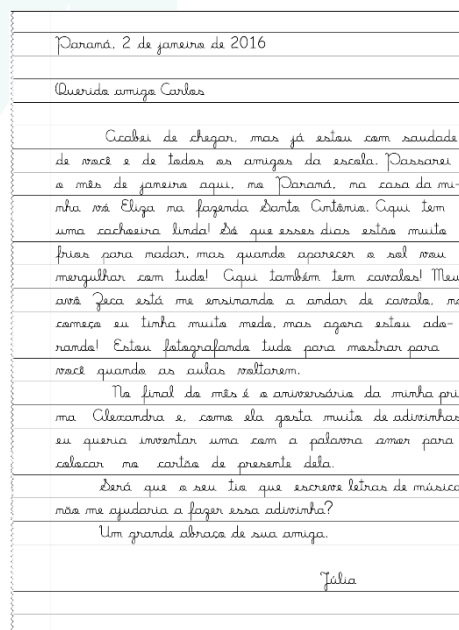 Paraná, 2 de janeiro de 2016
Querido amigo Carlos
Acabei de chegar, mas já estou com saudade
de você e de todos os amigos da escola. Passarei
o mês de janeiro aqui, no Paraná, na casa da mi-
nha vó Eliza na fazenda Santo Antônio. Aqui tem
uma cachoeira linda! Só que esses dias estão muito
frios para nadar, mas quando aparecer o sol vou
mergulhar com tudo! Aqui também tem cavalos! Meu
avô Zeca está me ensinando a andar de cavalo, no
começo eu tinha muito medo, mas agora estou ado-
rando! Estou fotografando tudo para mostrar para
você quando as aulas voltarem.
No final do mês é o aniversário da minha pri
ma Alexandra e, como ela gosta muito de adivinhas
eu queria inventar uma com a palavra amor para
colocar no cartão de presente dela.
Será que o seu tio que escreve letras de música
não me ajudaria a fazer essa adivinha?
Um grande abraço de sua amiga.
Júlia